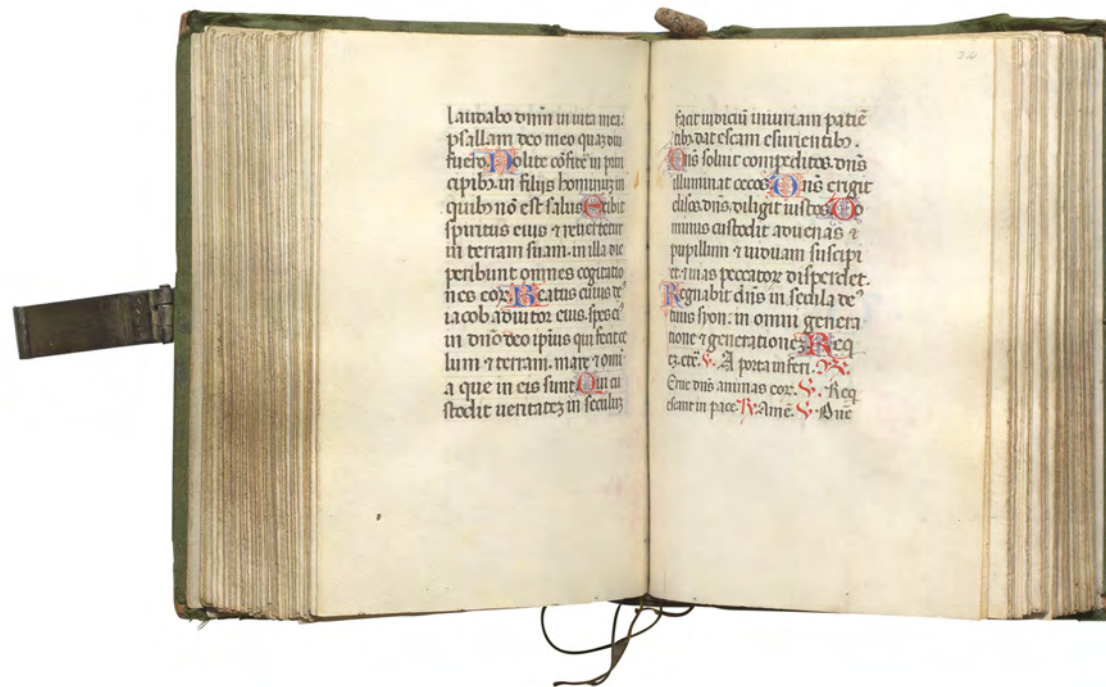 laudabo dnm̄ in uita mea.
psallam deo meo quaʒ diu
fuero. Nolite cōfitē in prin
cipibꝫ in filijs hominuʒ in
quibꝫ nō est salus Exibit
spiritus eius ⁊ reuertetur
in terram suam. in illa die
peribunt omnes cogitatio
nes eoꝝ. Beatus cuius deꝰ
iacob adiutor eius. spes eiꝰ
in dnō deo ipsius qui fecit ce
lum ⁊ terram. mare ⁊ omī
a que in eis sunt Qui cu
stodit ueritateʒ in seculuʒ
34
facit iudiciū iniuriam patiē
tibꝫ. dat escam esurientibꝫ.
Dn̄s soluit compeditos. dn̄s
illuminat cecos Dn̄s erigit
elisos. dn̄s diligit iustos Do
minus custodit aduenas ⁊
pupillum ⁊ uiduam suscipi
et. ⁊ uias peccatoꝝ disperdet.
Regnabit dn̄s in secula deꝰ
tuus syon. in omni genera
tione ⁊ generationeʒ Req
ʒ. etē. V. A porta inferi. R.
Erue dn̄s animas eoꝝ. V. Req
escant in pace R. Amē. V. Dn̄e